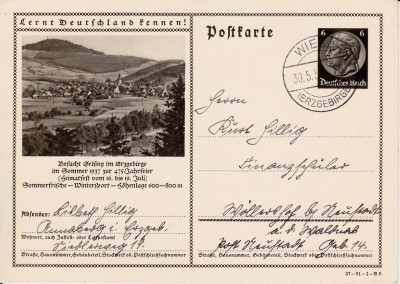 Lernt Deutschland kennen!
Postkarte
6 6
Deutsches Reich
WIE
30.5.
(ERZGEBIRGE)
Besucht Geising im Erzgebirge
im Sommer 1937 zur 475 Jahrfeier
(Heimatfest vom 16. bis 19. Juli)
Sommerfrische – Wintersport – Höhenlage 600–800 m
Absender: Hillig
Annaberg i. Erzgeb.
Wohnort, auch Zustell- oder Leitpostamt
Siedlerweg 19.
Straße, Hausnummer, Gebäudeteil, Stockwerk od. Postschließfachnummer
Herrn
Kurt Hillig
Finanzschüler
Wöllershof bei Neustadt
a. d. Waldnab
Post Neustadt Geb. 14.
Straße, Hausnummer, Gebäudeteil, Stockwerk od. Postschließfachnummer